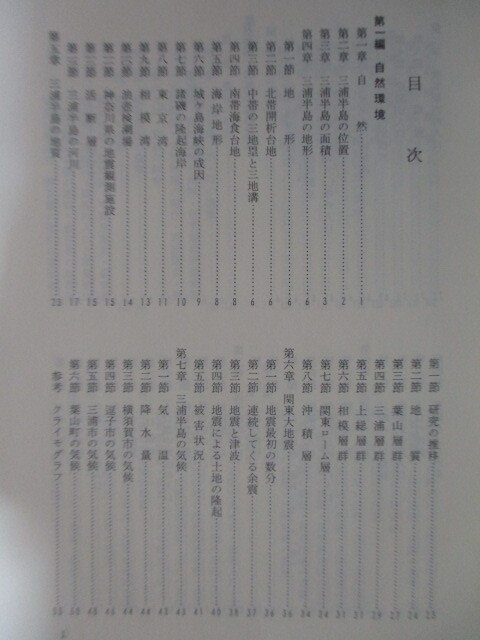 目次
第一編 自然環境
第一章 自然……1
第二章 三浦半島の位置……2
第三章 三浦半島の面積……3
第四章 三浦半島の地形……6
第一節 地形……6
第二節 北帯開析台地……6
第三節 中帯の三地塁と三地溝……6
第四節 南帯海食台地……8
第五節 海岸地形……8
第六節 城ヶ島海峡の成因……9
第七節 諸磯の隆起海岸……10
第八節 東京湾……11
第九節 相模湾……13
第一〇節……14
神奈川県の地震観測施設……15
活断層……15
三浦半島の河川……17
第五章 三浦半島の地質……23
第一節 研究の推移……23
第二節 地質……24
第三節 葉山層群……27
第四節 三浦層群……29
第五節 上総層群……31
第六節 相模層群……31
第七節 関東ローム層……34
第八節 沖積層……34
第六章 関東大地震……36
第一節 地震最初の数分……36
第二節 連続してくる余震……37
第三節 地震と津波……38
第四節 地震による土地の隆起……40
第五節 被害状況……41
第七章 三浦半島の気候……43
第一節 気温……43
第二節 降水量……44
第三節 横須賀市の気候……44
第四節 逗子市の気候……46
第五節 三浦市の気候……48
第六節 葉山町の気候……50
参考 クライモグラフ……53